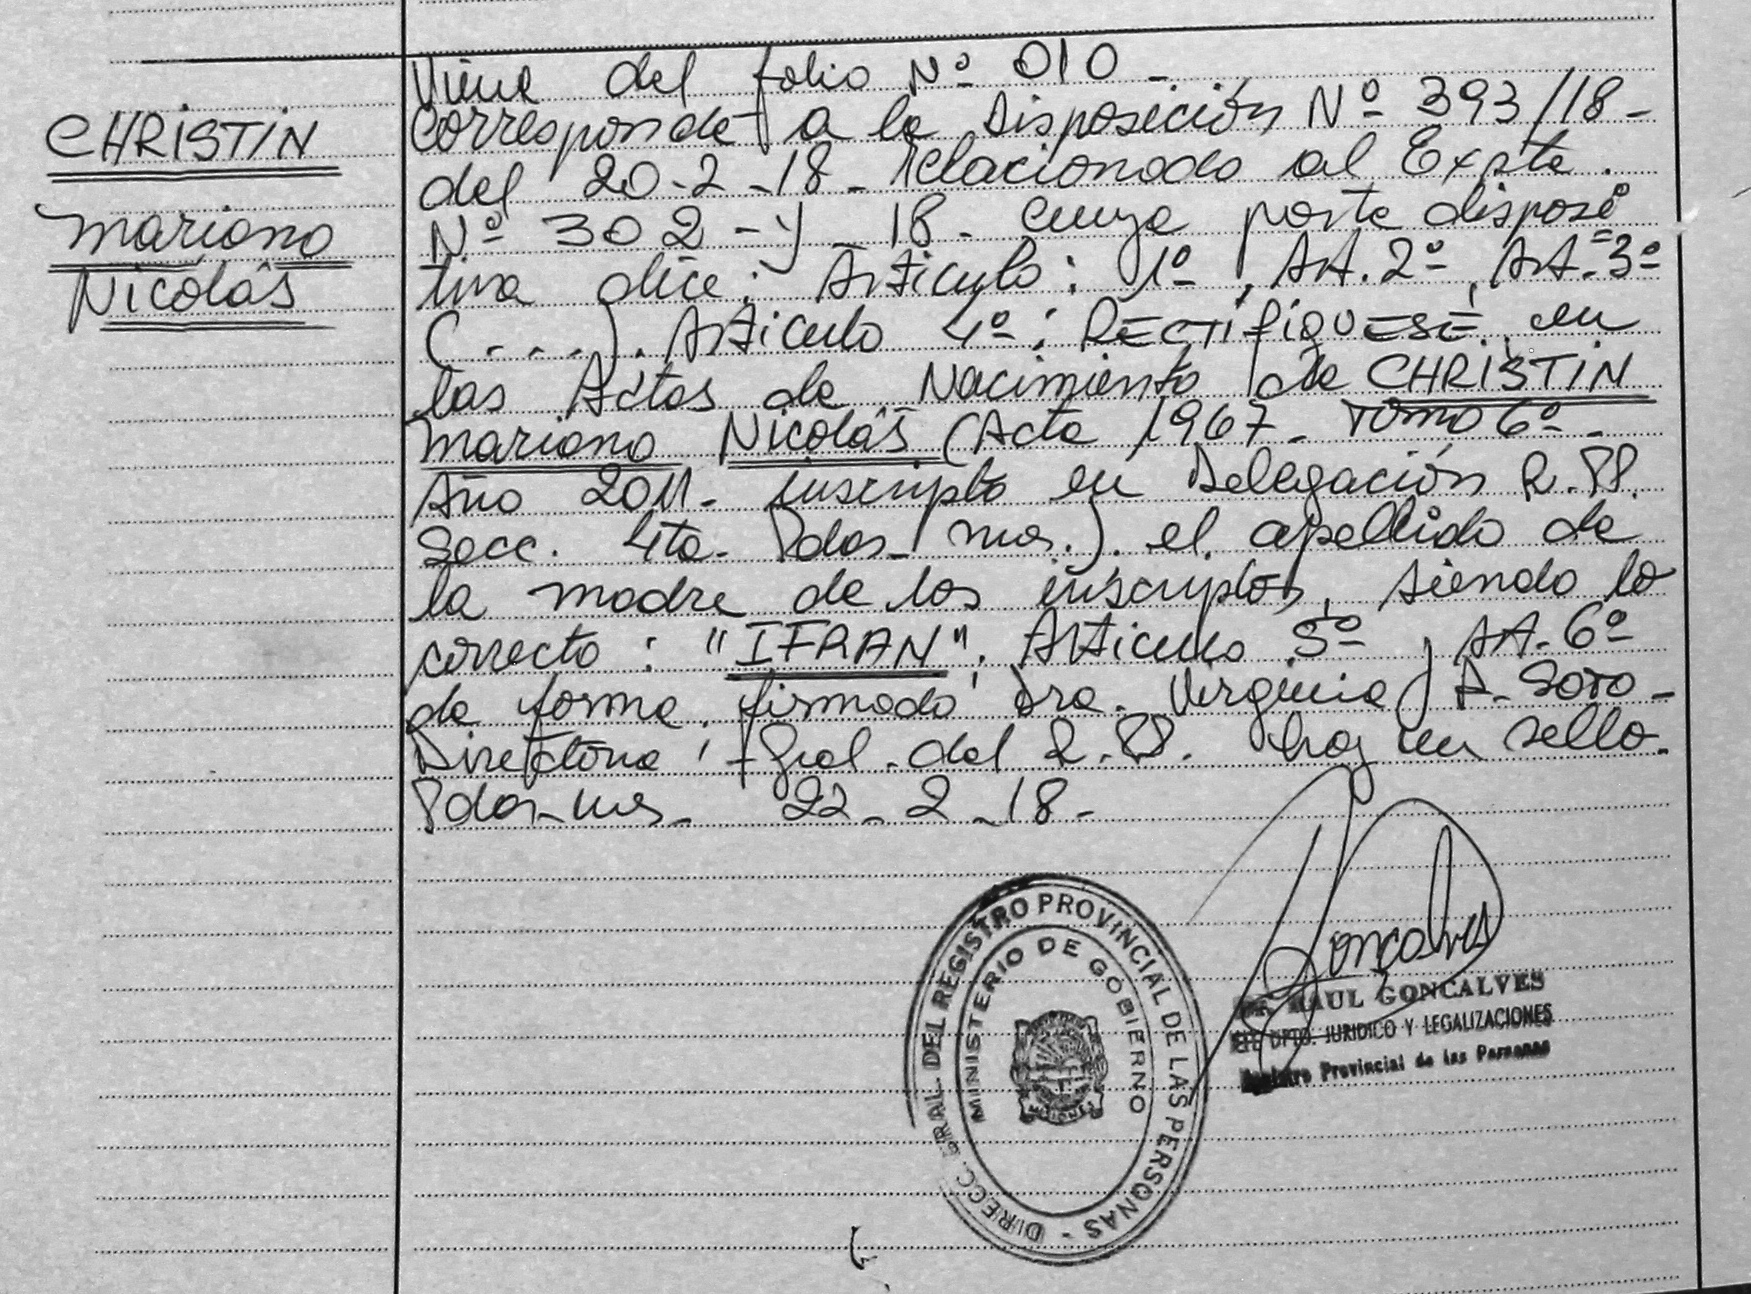 CHRISTIN
Mariano
Nicolás
Viene del folio Nº 010 -
Corresponde a la Disposición Nº 393/18 -
del 20-2-18- relacionado al Expte.
Nº 302-Y-18- cuya parte disposi
tiva dice: Articulo: 1º, AA. 2º, AA. 3º
(....). Articulo 4º: RECTIFIQUESE en
las Actas de Nacimiento de CHRISTIN
Mariano Nicolás (Acta 1967- Tomo 6º-
Año 2011- inscripto en Delegación R.PP.
Secc. 4ta. Pdas- Mnes.). el apellido de
la madre de los inscriptos, siendo lo
correcto: "IFRAN". Articulo 5º, AA. 6º
de forma. firmado Dra. Virginia A. Soto-
Directora Gral. del R.PP. hay un sello.
Pdas-Mnes- 22-2-18-
Goncalves
DR. RAUL GONCALVES
JEFE DPTO. JURIDICO Y LEGALIZACIONES
Registro Provincial de las Personas
DIRECC. GRAL. DEL REGISTRO PROVINCIAL DE LAS PERSONAS -
MINISTERIO DE GOBIERNO
MISIONES